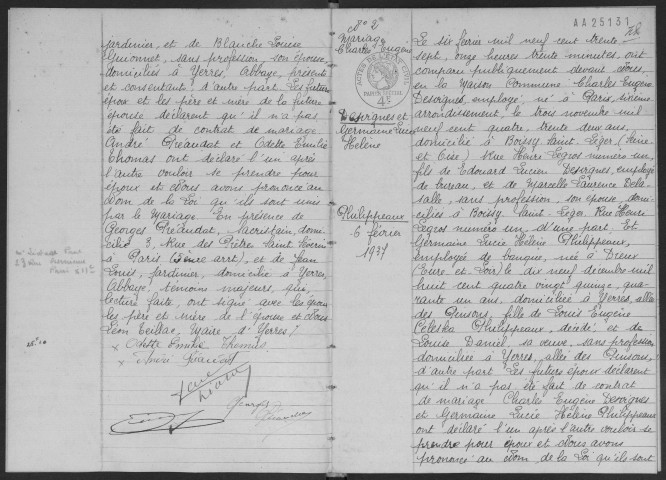 jardinier, et de Blanche Louise
Guionnet, sans profession, son épouse
domiciliés à Yerres, Abbaye, présents
et consentants, d'autre part. Les futurs
époux et les père et mère de la future
épouse déclarent qu'il n'a pas
été fait de contrat de mariage.
André Préaudat et Odette Emilie
Thomas ont déclaré l'un après
l'autre vouloir se prendre pour
époux et Nous avons prononcé au
Nom de la Loi qu'ils sont unis
par le Mariage. En présence de
Georges Préaudat, sacristain, domi-
cilié 3, Rue des Prêtres Saint Séverin
à Paris arrt), et de Jean
Louis, jardinier, domicilié à Yerres,
Abbaye, témoins majeurs, qui,
lecture faite, ont signé avec les époux
les père et mère de l'épouse et Nous
Léon Teillac, Maire d'Yerres /
Odette Emilie Thomas
André Préaudat
Georges
Préaudat
N° 2
Mariage
Charles Eugène
Desvignes et
Germaine Lucie
Hélène
Philippeaux
6 février
1937
AA25131
Le six février mil neuf cent trente
sept, onze heures trente minutes, ont
comparu publiquement devant Nous,
en la Maison Commune Charles Eugène
Desvignes, employé, né à Paris,
arrondissement, le trois novembre mil
neuf cent quatre, trente deux ans,
domicilié à Boissy Saint Léger (Seine
et Oise) Rue Henri Legros numéro un,
fils de Edouard Lucien Desvignes, employé
de bureau, et de Marcelle Laurence Dela-
salle, sans profession, son épouse, domi-
ciliés à Boissy Saint Léger, Rue Henri
Legros numéro un, d'une part. Et
Germaine Lucie Hélène Philippeaux,
employée de banque, née à Dreux
(Eure et Loir) le dix neuf décembre mil
huit cent quatre vingt quinze, qua-
rante un ans, domiciliée à Yerres, allée
des Pinsons, fille de Louis Eugène
Philippeaux, décédé, et de
Louise Daniel, sa veuve, sans profession
domiciliée à Yerres, allée des Pinsons,
d'autre part. Les futurs époux déclarent
qu'il n'a pas été fait de contrat
de mariage. Charles Eugène Desvignes
et Germaine Lucie Hélène Philippeaux
ont déclaré l'un après l'autre vouloir se
prendre pour époux et Nous avons
prononcé au Nom de la Loi qu'ils sont